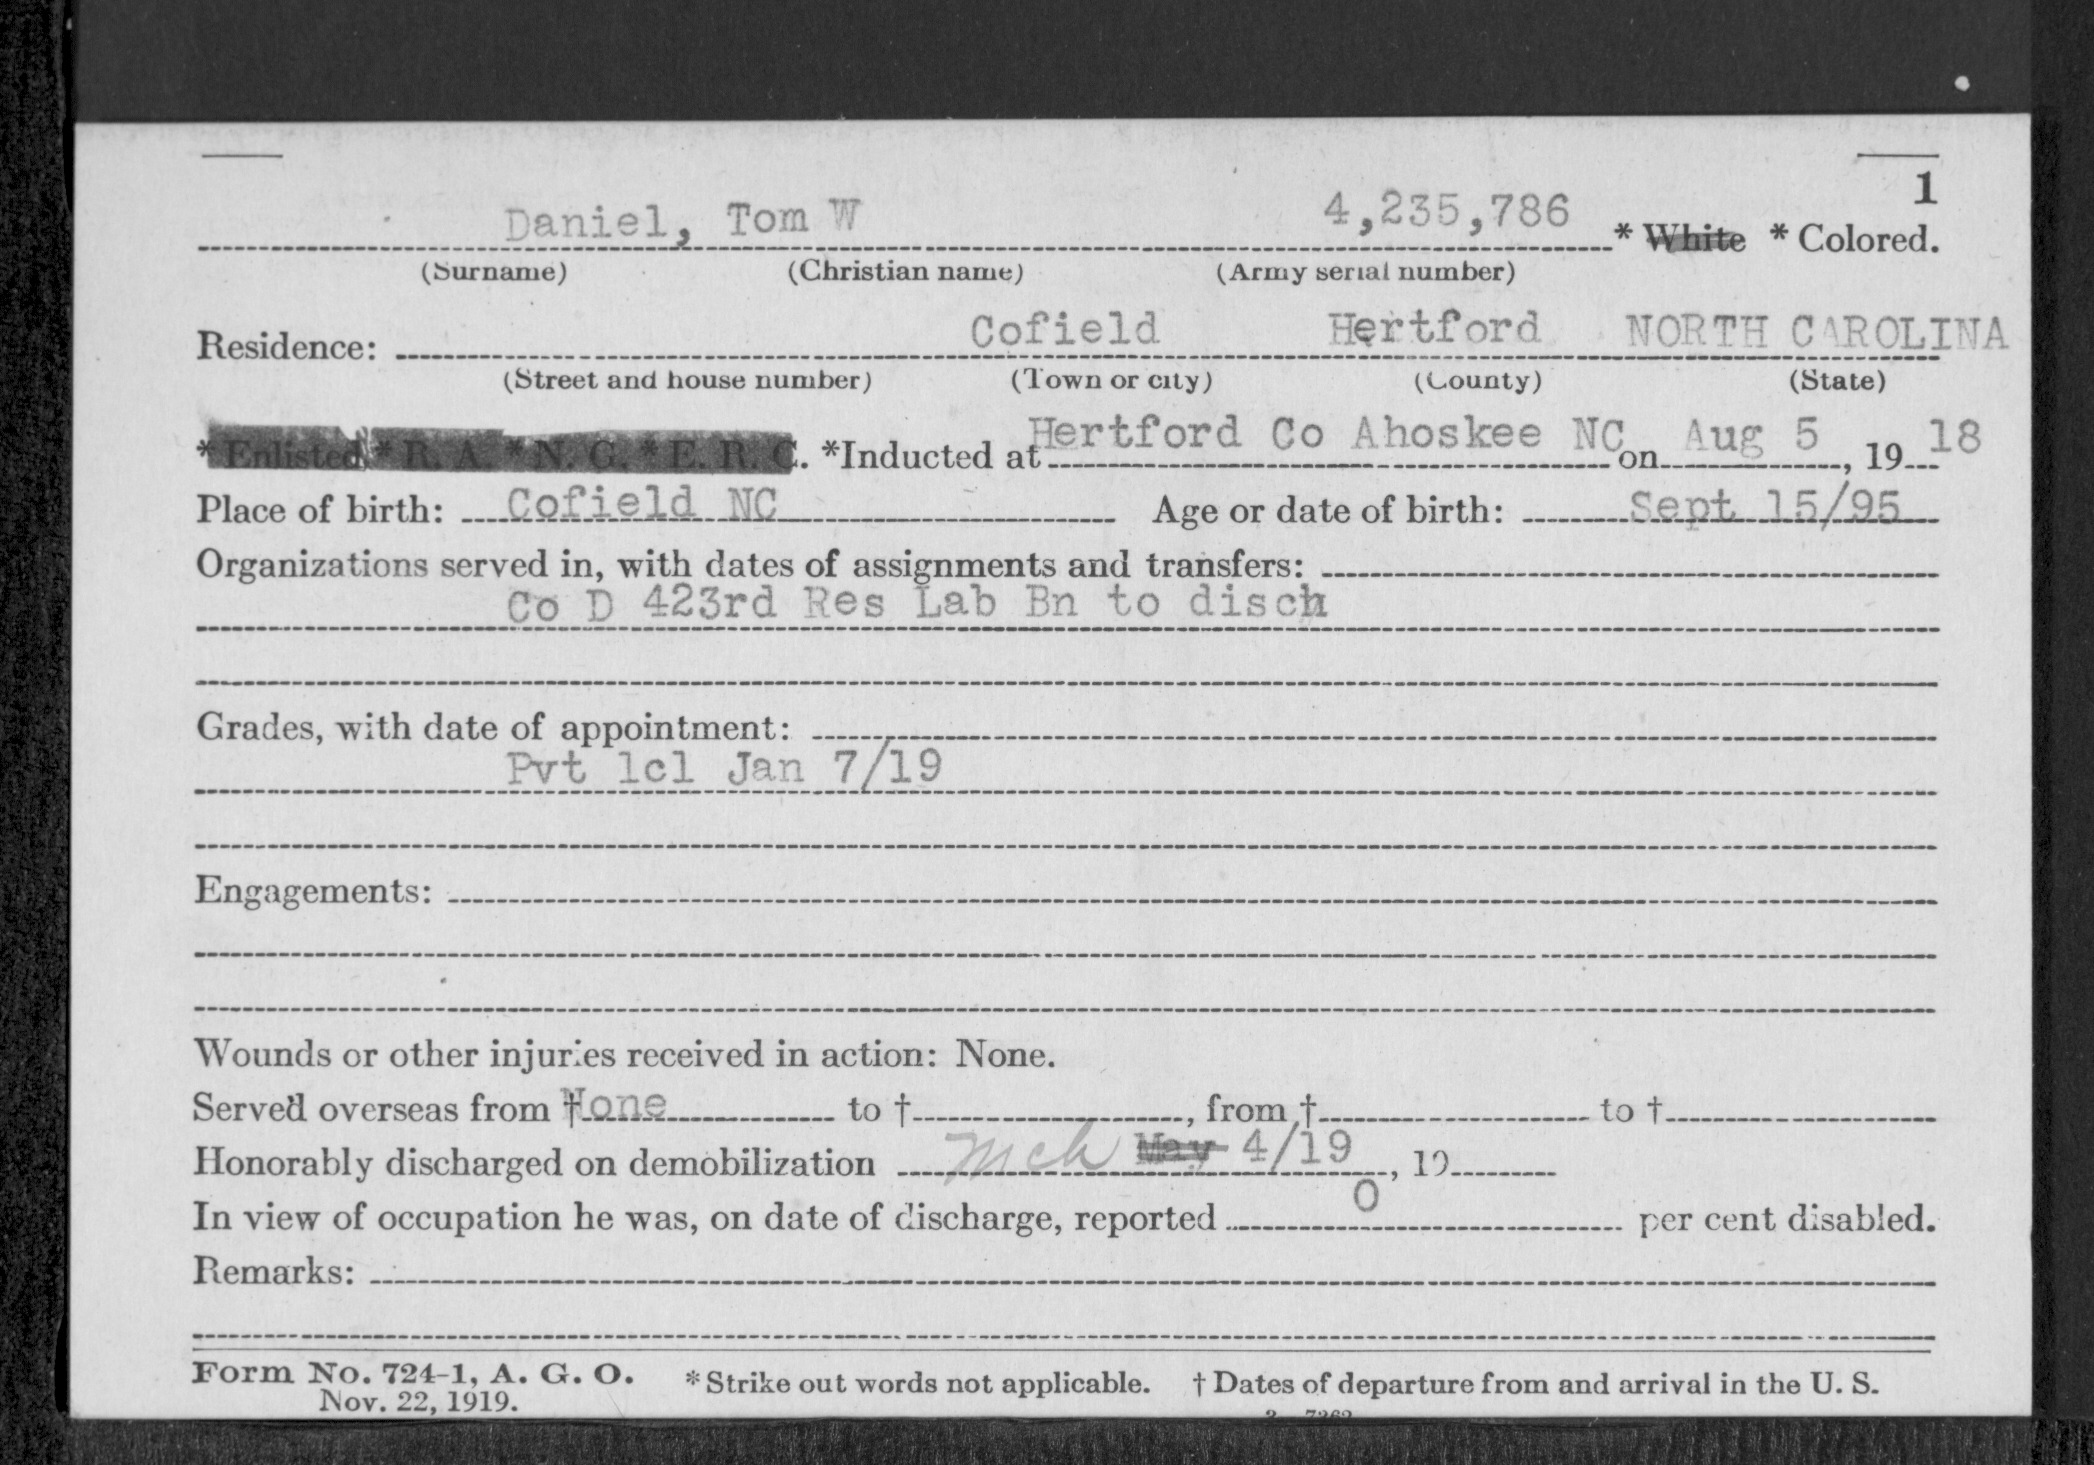 1
Daniel, Tom W 4,235,786 * White * Colored.
(Surname) (Christian name) (Army serial number)
Residence: Cofield Hertford NORTH CAROLINA
(Street and house number) (Town or city) (County) (State)
* Enlisted * R. A. * N. G. * E. R. C. *Inducted at Hertford Co Ahoskee NC on Aug 5, 19 18
Place of birth: Cofield NC Age or date of birth: Sept 15/95
Organizations served in, with dates of assignments and transfers:
Co D 423rd Res Lab Bn to disch
Grades, with date of appointment:
Pvt 1cl Jan 7/19
Engagements:
Wounds or other injuries received in action: None.
Served overseas from † None to †, from † to †
Honorably discharged on demobilization Mch May 4/19, 19
In view of occupation he was, on date of discharge, reported 0 per cent disabled.
Remarks:
Form No. 724-1, A. G. O. * Strike out words not applicable. † Dates of departure from and arrival in the U. S.
Nov. 22, 1919.